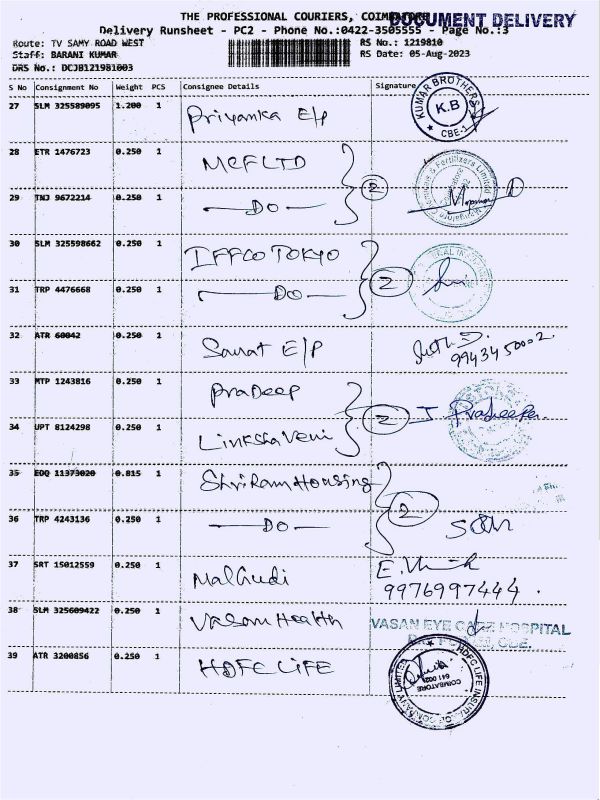 THE PROFESSIONAL COURIERS, COIMBATORE
DOCUMENT DELIVERY
Delivery Runsheet - PC2 - Phone No.:0422-3505555 - Page No.:3
Route: TV SAMY ROAD WEST
RS No.: 1219810
Staff: BARANI KUMAR
RS Date: 05-Aug-2023
DRS No.: DCJB121981003
S No Consignment No Weight PCS Consignee Details Signature
27 SLM 325589095 1.200 1 Priyanka E/P
KUMAR BROTHERS K.B CBE-1
28 ETR 1476723 0.250 1 MCFLTD
2
29 TNJ 9672214 0.250 1 DO
30 SLM 325598662 0.250 1 IFFCO TOKYO
2
31 TRP 4476668 0.250 1 DO
32 ATR 60042 0.250 1 Sarat E/P
9943450002
33 MTP 1243816 0.250 1 Pradeep
2 J Pradeepa.
34 UPT 8124298 0.250 1 Linksha Veni
35 EOQ 11373020 0.815 1 Shri Ram Housing
2
36 TRP 4243136 0.250 1 DO
37 SRT 15012559 0.250 1 Malgudi
9976997444.
38 SLM 325609422 0.250 1 Vasan Health
VASAN EYE CARE HOSPITAL
CBE.
39 ATR 3200856 0.250 1 HDFC LIFE
HDFC LIFE INSURANCE COMPANY LIMITED
COIMBATORE